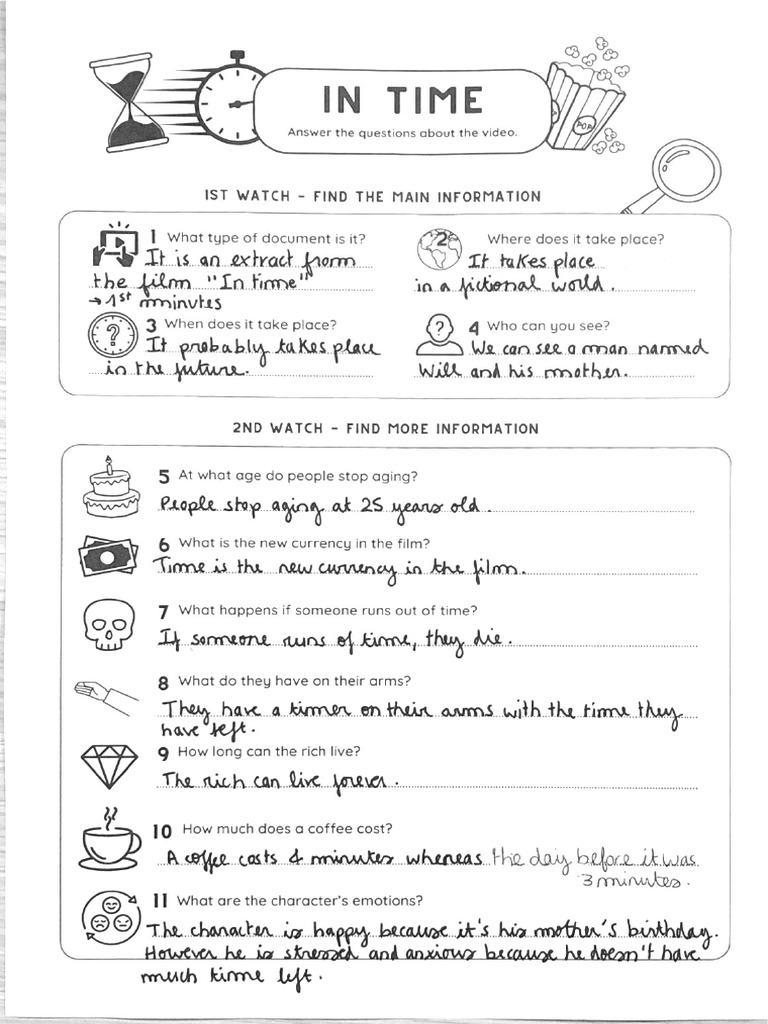 IN TIME
Answer the questions about the video.
1ST WATCH - FIND THE MAIN INFORMATION
1 What type of document is it?
It is an extract from
the film "In time"
→ 1st minutes
2 Where does it take place?
It takes place
in a fictional world.
3 When does it take place?
It probably takes place
in the future.
4 Who can you see?
We can see a man named
Will and his mother.
2ND WATCH - FIND MORE INFORMATION
5 At what age do people stop aging?
People stop aging at 25 years old.
6 What is the new currency in the film?
Time is the new currency in the film.
7 What happens if someone runs out of time?
If someone runs of time, they die.
8 What do they have on their arms?
They have a timer on their arms with the time they
have left.
9 How long can the rich live?
The rich can live forever.
10 How much does a coffee cost?
A coffee costs 4 minutes whereas the day before it was
3 minutes.
11 What are the character's emotions?
The character is happy because it's his mother's birthday.
However he is stressed and anxious because he doesn't have
much time left.
POP